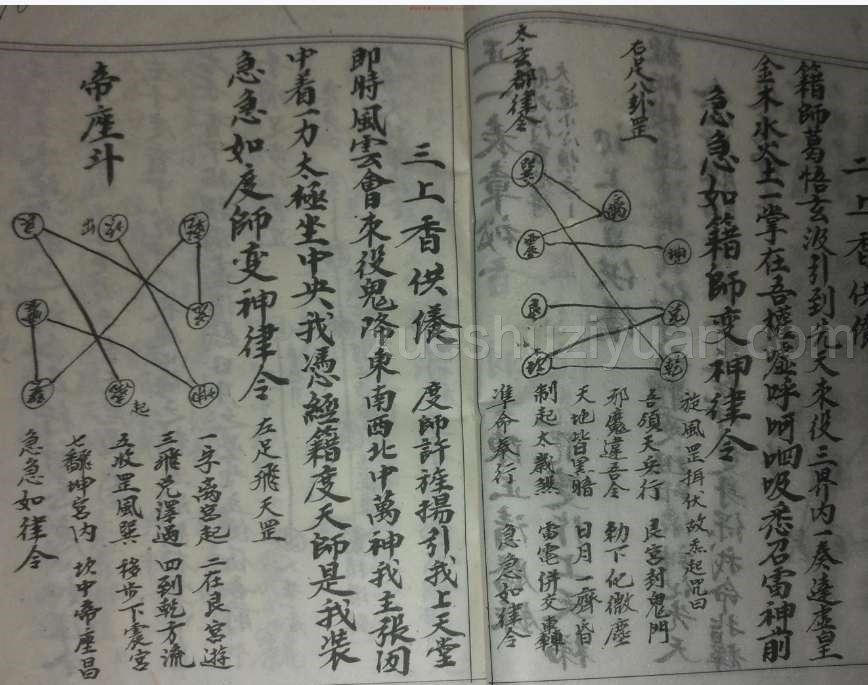 二上香供儀
籍師葛悟玄汲引到先天來役三界內一奏達虛皇
金木水火土一掌在吾權噓呼呵呬吸悉召雷神前
急急如籍師變神律令
右足八卦罡
太玄都律令
巽 離 震 坤 艮 兌 坎 乾
旋風罡揖伏故炁起咒曰
吾領天兵行 艮宮封鬼門
邪魔違吾令 勑下化微塵
天地皆黑暗 日月一齊昏
制起太歲煞 雷電併交轟
準命奉行 急急如律令
三上香供儀 度師許旌揚引我上天堂
即時風雲會來役鬼降東南西北中萬神我主張罡
中着一力太極坐中央我憑經籍度天師是我裝
急急如度師變神律令
左足飛天罡
帝座斗
出 起
一孚离宮起 二在艮宮遊
三飛兌澤遇 四到乾方流
五收罡風巽 移步下震宮
七翻坤宮內 坎中帝座昌
急急如律令
xueshuziyuan.com